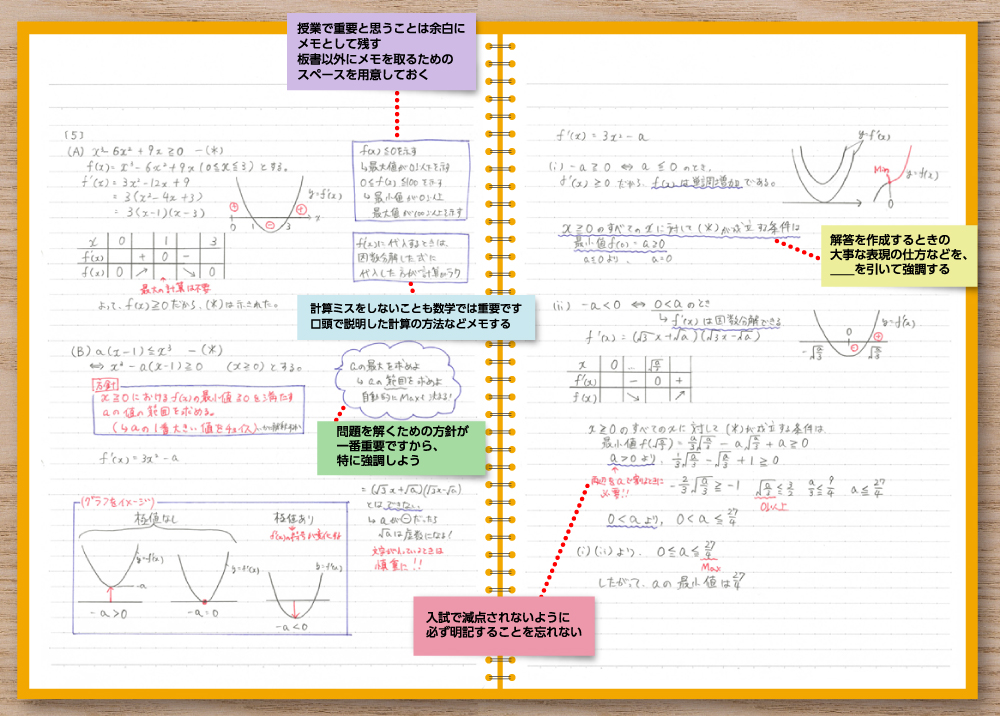 授業で重要と思うことは余白に
メモとして残す
板書以外にメモを取るための
スペースを用意しておく
[5]
(A) x³-6x²+9x≧0 -(*)
f(x)=x³-6x²+9x (0≦x≦3)とする。
f'(x)=3x²-12x+9
=3(x²-4x+3)
=3(x-1)(x-3)
y=f'(x)
1 3 x
x 0 1 3
f'(x) + 0 -
f(x) 0 ↗ ↘ 0
最大の計算は不要
よって、f(x)≧0だから、(*)は示された。
f(x)≦0を示す
↳最大値が0以下を示す
0≦f(x)≦100を示す
↳最小値が0以上
最大値が100以下を示す
f(x)に代入するときは、
因数分解した式に
代入した方が計算がラク
計算ミスをしないことも数学では重要です
口頭で説明した計算の方法などメモする
(B) a(x-1)≦x³ -(*)
⇔ x³-a(x-1)≧0 (x≧0)とする。
方針
x≧0におけるf(x)の最小値≧0を満たす
aの値の範囲を求める。
f'(x)=3x²-a
aの最大を求めよ
↳aの範囲を求めよ
自動的にMaxは決まる!
問題を解くための方針が
一番重要ですから、
特に強調しよう
=(√3x+√a)(√3x-√a)
とはできない
↳aが⊖だったら
√aは虚数になる!
文字が入っているときは
慎重に!!
(グラフをイメージ)
極値なし
極値あり
y=f'(x)
y=f'(x)
y=f'(x)
-a
-a>0
-a=0
-a<0
f'(x)=3x²-a
(i) -a≧0 ⇔ a≦0のとき、
f'(x)≧0だから、f(x)は単調増加である。
y=f'(x)
Min
y=f(x)
x≧0のすべてのxに対して(*)が成立する条件は
最小値f(0)=a≧0
a≦0より、a=0
解答を作成するときの
大事な表現の仕方などを、
___を引いて強調する
(ii) -a<0 ⇔ 0<aのとき
↳f'(x)は因数分解できる
f'(x)=(√3x+√a)(√3x-√a)
y=f'(x)
-√a/3 0 √a/3
x 0 … √a/3
f'(x) - 0 +
f(x) ↘ ↗
x≧0のすべてのxに対して(*)が成立する条件は、
最小値f(√a/3)=a/3√a/3-a√a/3+a≧0
a>0より、1/3√a/3-√a/3+1≧0
両辺をaで割るときに
必要!!
-2/3√a/3≧-1 √a/3≦3/2 a/3≦9/4 a≦27/4
0以上
0<aより、0<a≦27/4
(i)(ii)より、0≦a≦27/4
Max
したがって、aの最小値は27/4
入試で減点されないように
必ず明記することを忘れない